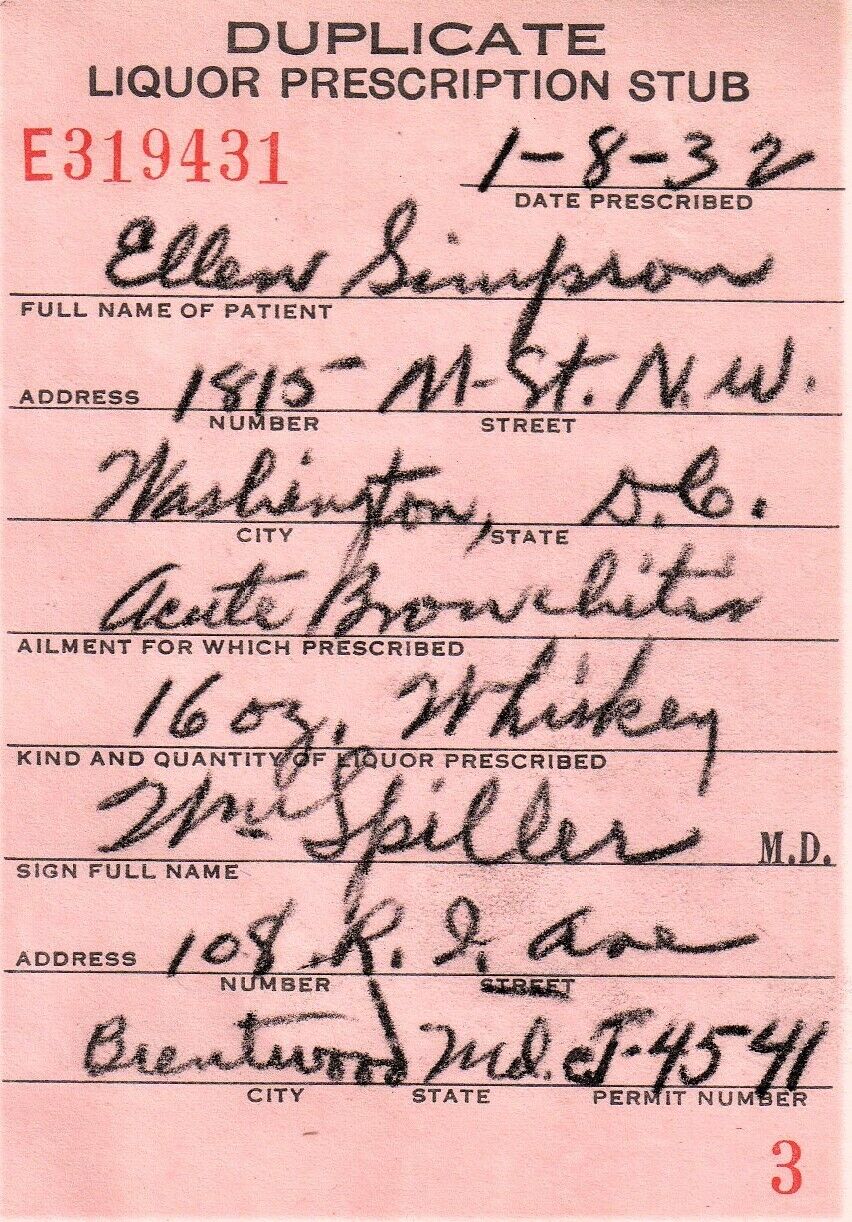 DUPLICATE
LIQUOR PRESCRIPTION STUB
E319431 1-8-32
DATE PRESCRIBED
Ellen Simpson
FULL NAME OF PATIENT
ADDRESS 1815 M-St. N.W.
NUMBER STREET
Washington, D.C.
CITY STATE
Acute Bronchitis
AILMENT FOR WHICH PRESCRIBED
16 oz. Whiskey
KIND AND QUANTITY OF LIQUOR PRESCRIBED
Wm Spiller M.D.
SIGN FULL NAME
ADDRESS 108 R. I. Ave
NUMBER STREET
Brentwood Md. J-4541
CITY STATE PERMIT NUMBER
3